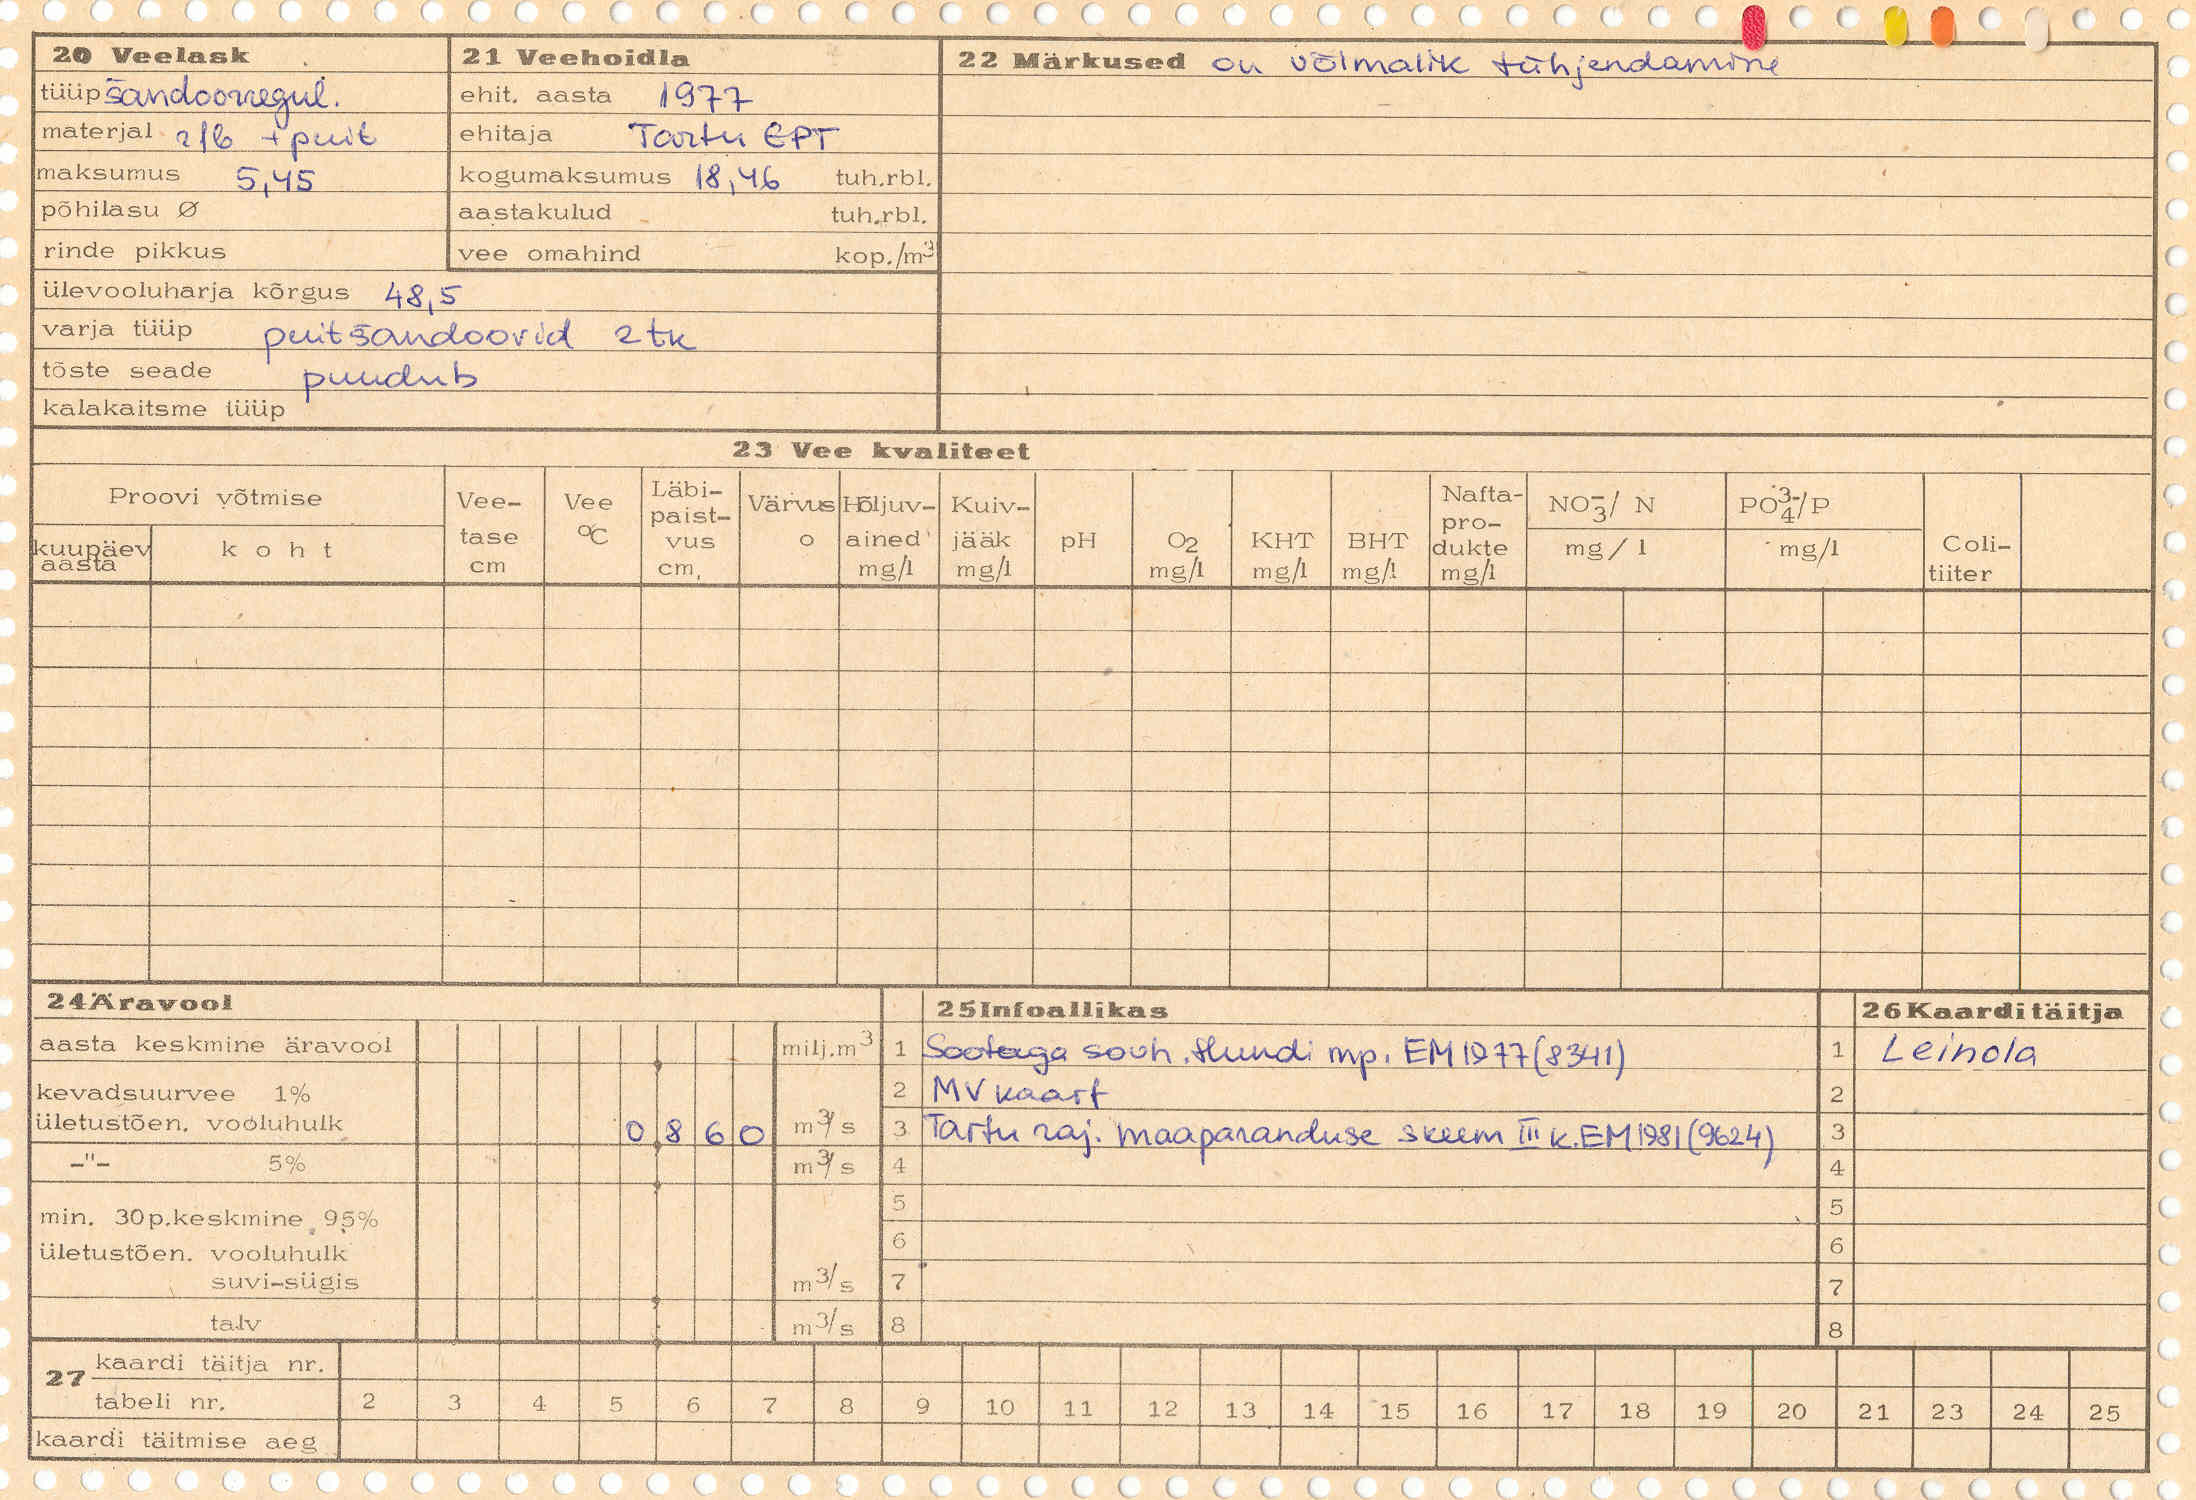 20 Veelask
tüüp šandoorregul.
materjal r/b + puit
maksumus 5,45
põhilasu Ø
rinde pikkus
ülevooluharja kõrgus 48,5
varja tüüp puitšandoorid 2 tk
tõste seade puudub
kalakaitsme tüüp
21 Veehoidla
ehit. aasta 1977
ehitaja Tartu EPT
kogumaksumus 18,46 tuh.rbl.
aastakulud tuh.rbl.
vee omahind kop./m³
22 Märkused on võimalik tühjendamine
23 Vee kvaliteet
Proovi võtmise
kuupäev aasta
koht
Vee-tase cm
Vee °C
Läbi-paist-vus cm,
Värvus o
Hõljuv-ained mg/l
Kuiv-jääk mg/l
pH
O₂ mg/l
KHT mg/l
BHT mg/l
Nafta-pro-dukte mg/l
NO₃⁻/ N mg/l
PO₄³⁻/P mg/l
Coli-tiiter
24 Äravool
aasta keskmine äravool milj.m³
kevadsuurvee 1%
ületustõen. vooluhulk 0,860 m³/s
-"- 5% m³/s
min. 30p.keskmine 95%
ületustõen. vooluhulk
suvi-sügis m³/s
talv m³/s
25 Infoallikas
1 Sootaga sovh. Hundi mp. EM 1977 (8341)
2 MV kaart
3 Tartu raj. maaparanduse skeem III k. EM 1981 (9624)
4
5
6
7
8
26 Kaardi täitja
1 Leinola
2
3
4
5
6
7
8
27 kaardi täitja nr.
tabeli nr. 2 3 4 5 6 7 8 9 10 11 12 13 14 15 16 17 18 19 20 21 23 24 25
kaardi täitmise aeg